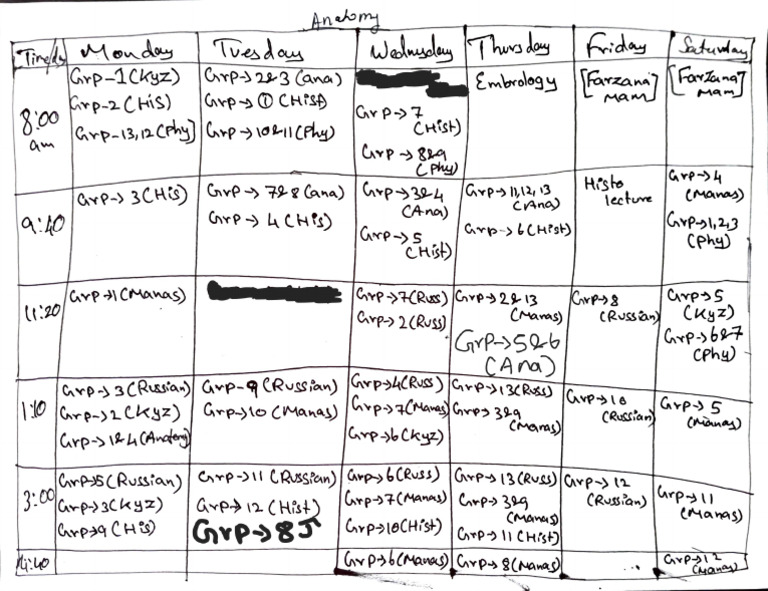 Anatomy
Time/day Monday Tuesday Wednesday Thursday Friday Saturday
8:00 am
Grp-1 (Kyz)
Grp-2 (His)
Grp-13,12 (Phy)
Grp→2&3 (ana)
Grp→① (Hist)
Grp→10&11 (Phy)
Grp→7
(Hist)
Grp→8&9
(Phy)
Embrology
[Farzana
Mam]
[Farzana
Mam]
9:40
Grp→3 (His)
Grp→7&8 (ana)
Grp→4 (His)
Grp→3&4
(Ana)
Grp→5
(Hist)
Grp→11,12,13
(Ana)
Grp→6 (Hist)
Histo
lecture
Grp→4
(Manas)
Grp→1,2,3
(Phy)
11:20
Grp→1 (Manas)
Grp→7 (Russ)
Grp→2 (Russ)
Grp→2&13
(Manas)
Grp→5&6
(Ana)
Grp→8
(Russian)
Grp→5
(Kyz)
Grp→6&7
(Phy)
1:10
Grp→3 (Russian)
Grp→2 (Kyz)
Grp→1&4
Grp-9 (Russian)
Grp→10 (Manas)
Grp→4 (Russ)
Grp→7 (Manas)
Grp→6 (Kyz)
Grp→13 (Russ)
Grp→3&9
(Manas)
Grp→10
(Russian)
Grp→5
(Manas)
3:00
Grp→5 (Russian)
Grp→3 (Kyz)
Grp→9 (His)
Grp→11 (Russian)
Grp→12 (Hist)
Grp→8
Grp→6 (Russ)
Grp→7 (Manas)
Grp→10 (Hist)
Grp→13 (Russ)
Grp→3&9
(Manas)
Grp→11 (Hist)
Grp→12
(Russian)
Grp→11
(Manas)
4:40
Grp→6 (Manas)
Grp→8 (Manas)
...
Grp→12
(Manas)